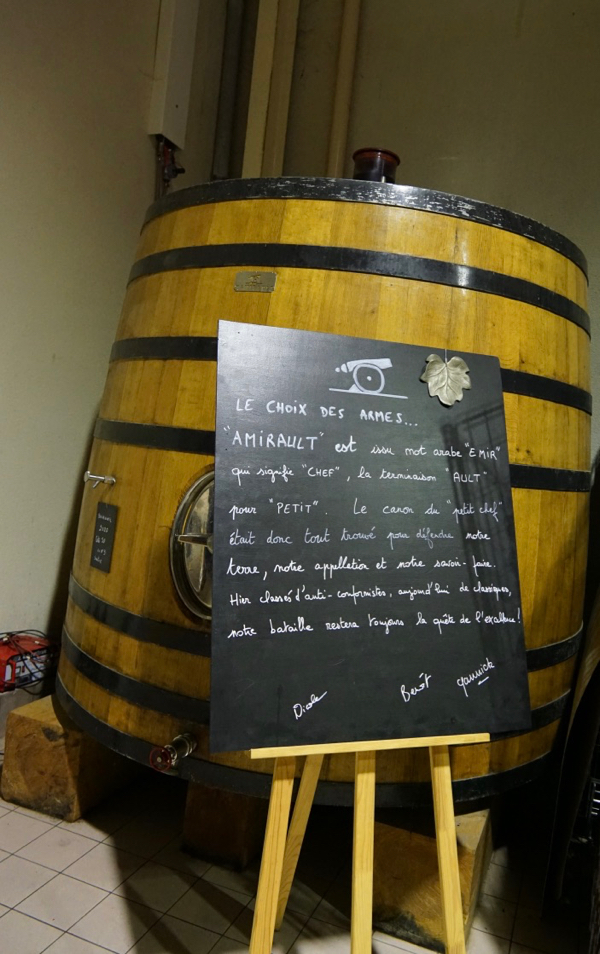 LE CHOIX DES ARMES...
"AMIRAULT" est issu mot arabe "EMIR"
qui signifie "CHEF", la terminaison "AULT"
pour "PETIT". Le canon du "petit chef"
était donc tout trouvé pour défendre notre
terre, notre appellation et notre savoir-faire.
Hier classés d'anti-conformistes, aujourd'hui de classiques,
notre bataille restera toujours la quête de l'excellence!
Benoît Yannick